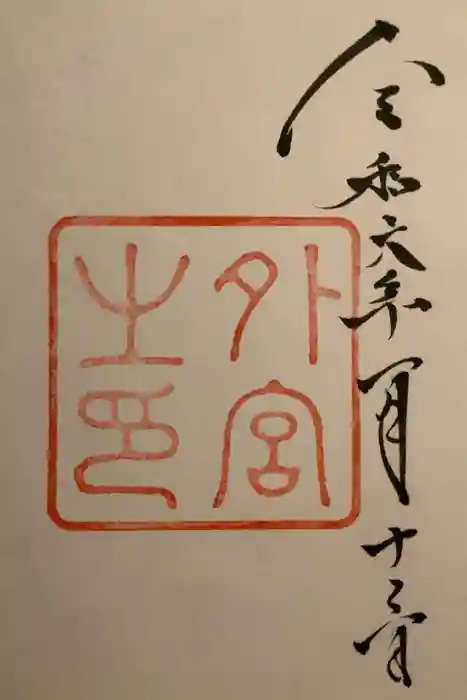 令和六年一月十三日
外宮
之印